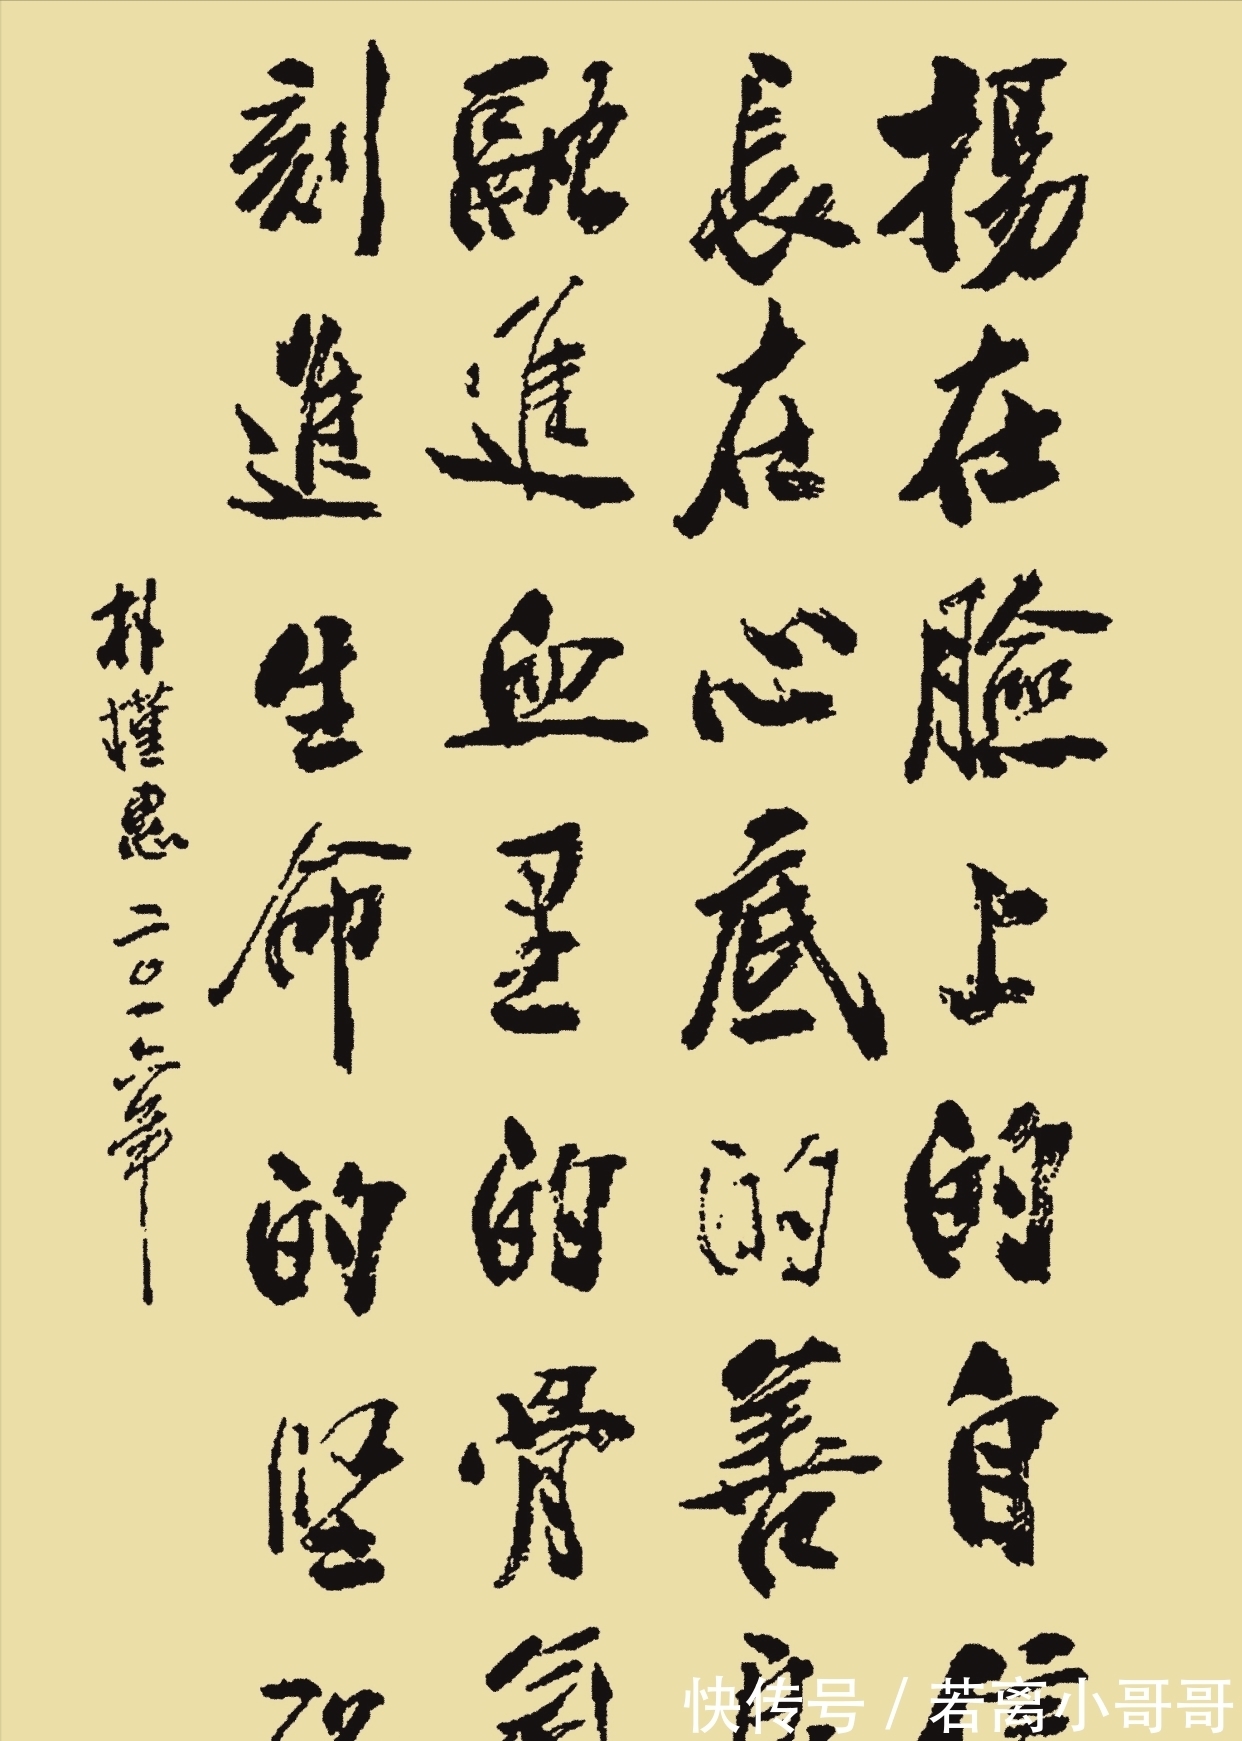 揚在臉上的自信
長在心底的善良
融進血里的骨氣
刻進生命的坚强
朴槿惠 二〇一六年
快传号 / 若离小哥哥